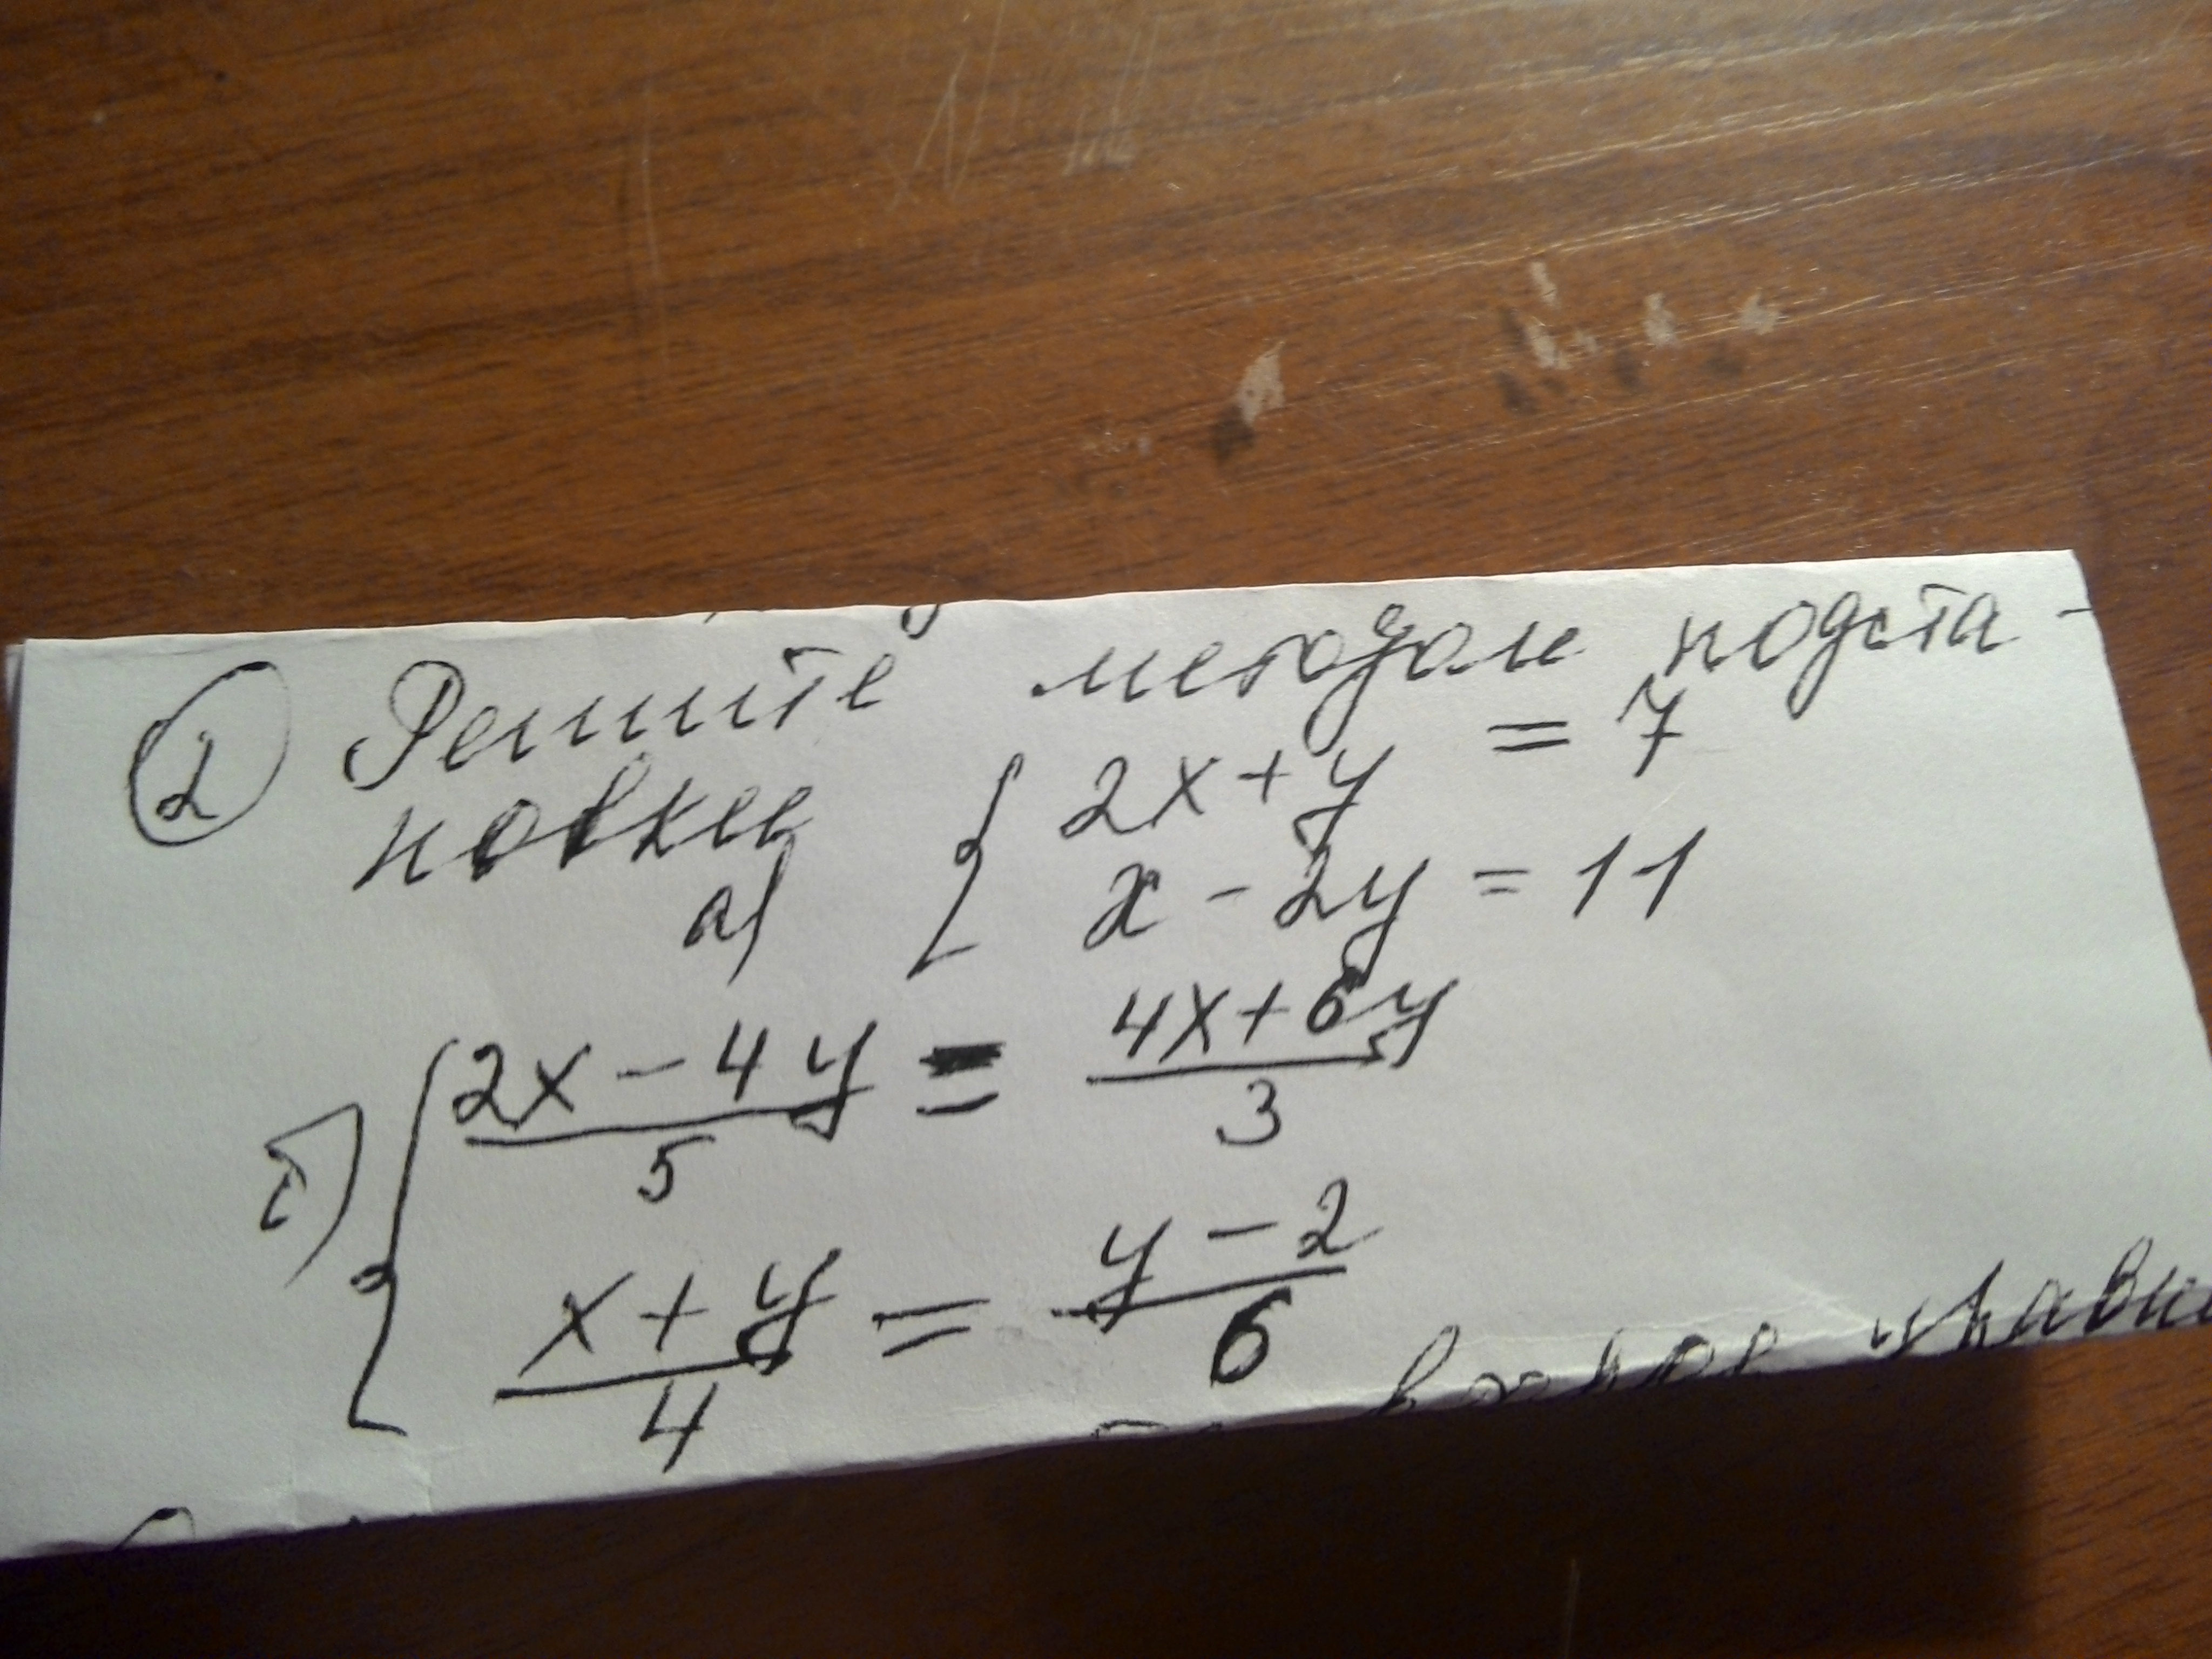 ② Решите методом подста-
новки
а) { 2x + y = 7
x - 2y = 11
б) { (2x - 4y)/5 = (4x + 6y)/3
(x + y)/4 = (y - 2)/6